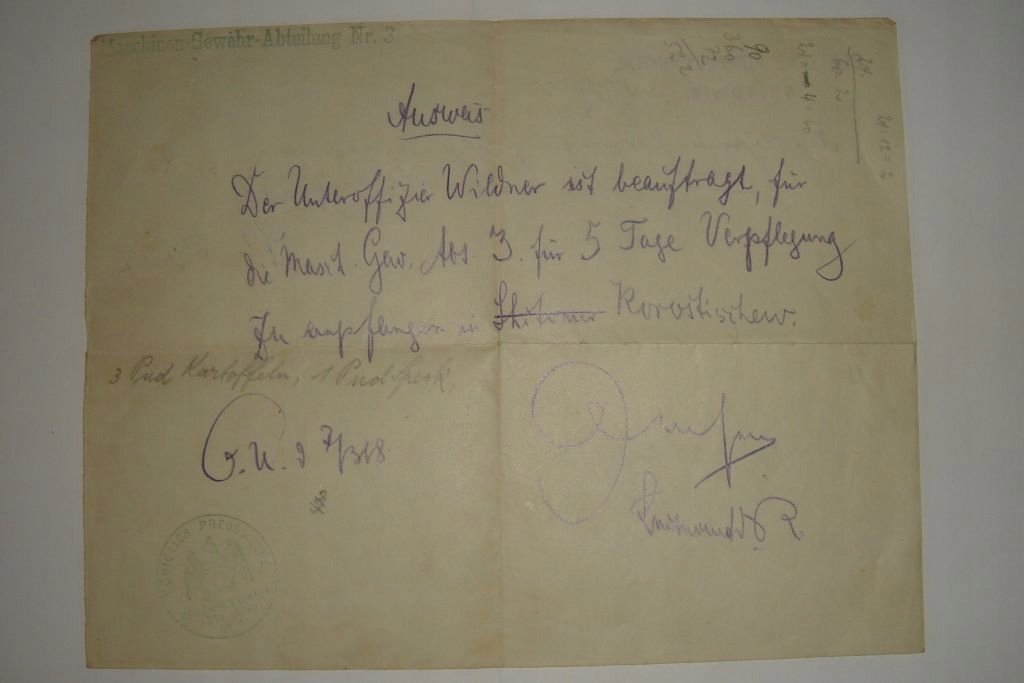 Maschinen-Gewehr-Abteilung Nr. 3
Ausweis
Der Unteroffizier Wildner ist beauftragt, für
die Masch. Gew. Abt. 3 für 5 Tage Verpflegung
zu empfangen in Korostischew.
3 Pud Kartoffeln, 1 Pud Speck
O.U. d 7/3 18.
Leutnant d R.
KÖNIGLICH PREUSSISCHE
24 : 12 = 2
90
360